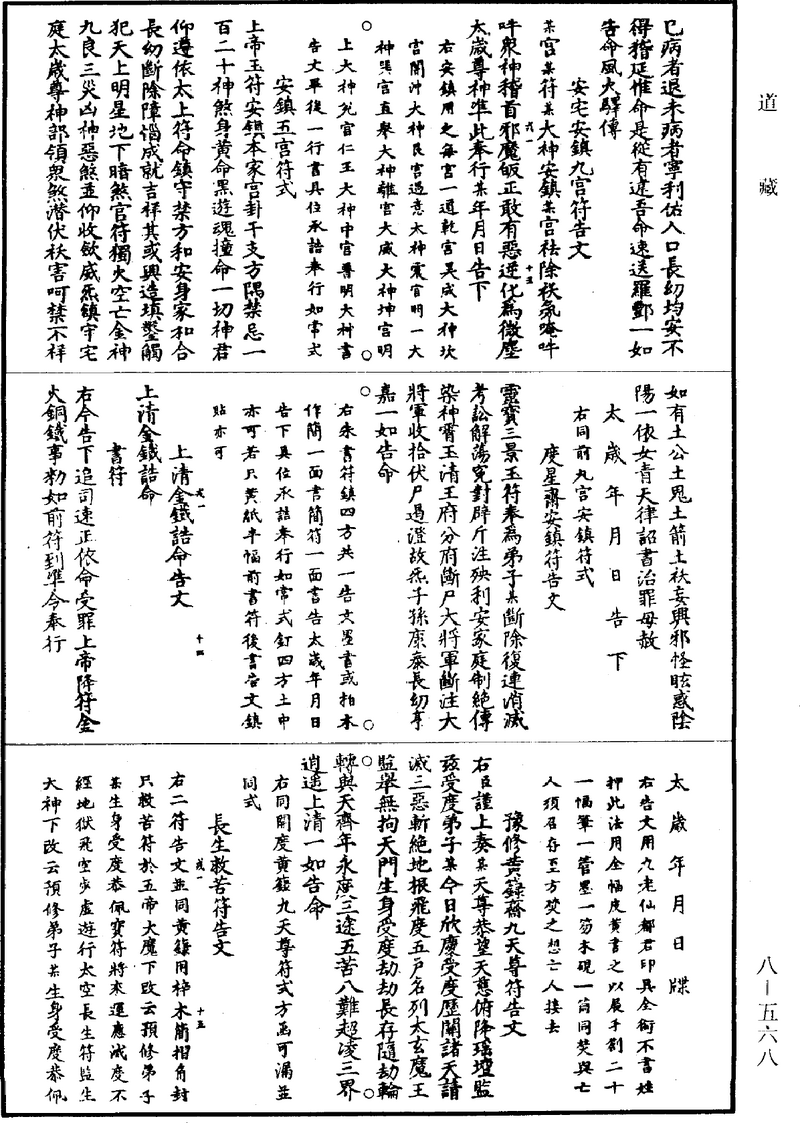 道藏
已病者退未病者寧利佑人口長幼均安不
得稽延惟命是從有違吾命速送羅酆一如
告命風火驛傳
安宅安鎮九宮符告文
某宮某符某大神安鎮某宮祛除祅氣唵吽
吽衆神稽首邪魔皈正敢有惡逆化為微塵
太歲尊神準此奉行某年月日告下
右安鎮用之每宮一道乾宮吴成大神坎
宮開沖大神艮宮遇意大神震宮明一大
神巽宮直舉大神離宮大威大神坤宮明
上大神兌宮仁王大神中宮尊明大神書
告文畢後一行書具位承誥奉行如常式
安鎮五宮符式
上帝玉符安鎮本家宮卦干支方隅禁忌一
百二十神煞身黃命黑遊魂撞命一切神君
仰遵依太上符命鎮守禁方和安身家和合
長幼斷除障惱成就吉祥其或興造填鑿觸
犯天上明星地下暗煞官符獨火空亡金神
九良三災凶神惡煞並仰收斂威炁鎮守宅
庭太歲尊神部領衆煞潛伏祅害呵禁不祥
如有土公土鬼土箭土祅妄興邪怪眩惑陰
陽一依女青天律詔書治罪毋赦
太歲年月日告下
右同前九宮安鎮符式
度星齋安鎮符告文
靈寶三景玉符奉為弟子某斷除復連消滅
考訟解蕩冤對辟斥注殃利安家庭制絕傳
染神霄玉清王府分府斷尸大將軍斷注大
將軍收拾伏尸遏澄故炁子孫康泰長幼享
嘉一如告命
右朱書符鎮四方共一告文墨書或柏木
作簡一面書簡符一面書告太歲年月日
告下具位承誥奉行如常式釘四方土中
亦可若只黃紙半幅前書符後書告文鎮
貼亦可
上清金鐵誥命告文
上清金鐵誥命
書符
右今告下追司速正依命受罪上帝降符金
火銅鐵事勑如前符到準令奉行
太歲年月日牒
右告文用九老仙都君印具全銜不書姓
押此法用全幅皮黃書之以展手劄二十
一幅筆一管墨一笏木硯一箇同焚與亡
人須召存至方焚之想亡人接去
豫修黃籙齋九天尊符告文
右臣謹上奏某天尊恭望天慈俯降瑤壇監
茲受度弟子某今日欣慶受度歷關諸天請
滅三惡斬絕地根飛度五戶名列太玄魔王
監舉無拘天門生身受度劫劫長存隨劫輪
轉與天齊年永度三途五苦八難超凌三界
逍遥上清一如告命
右同開度黃籙九天尊符式方函可漏並
同式
長生救苦符告文
右二符告文並同黃籙用梓木簡相角封
只救苦符於五帝大魔下改云預修弟子
某生身受度恭佩寶符將來運應滅度不
經地獄飛空步虛遊行太空長生符監生
大神下改云預修弟子某生身受度恭佩
戌一
十三
戌一
十四
戌一
十五
八一五六八